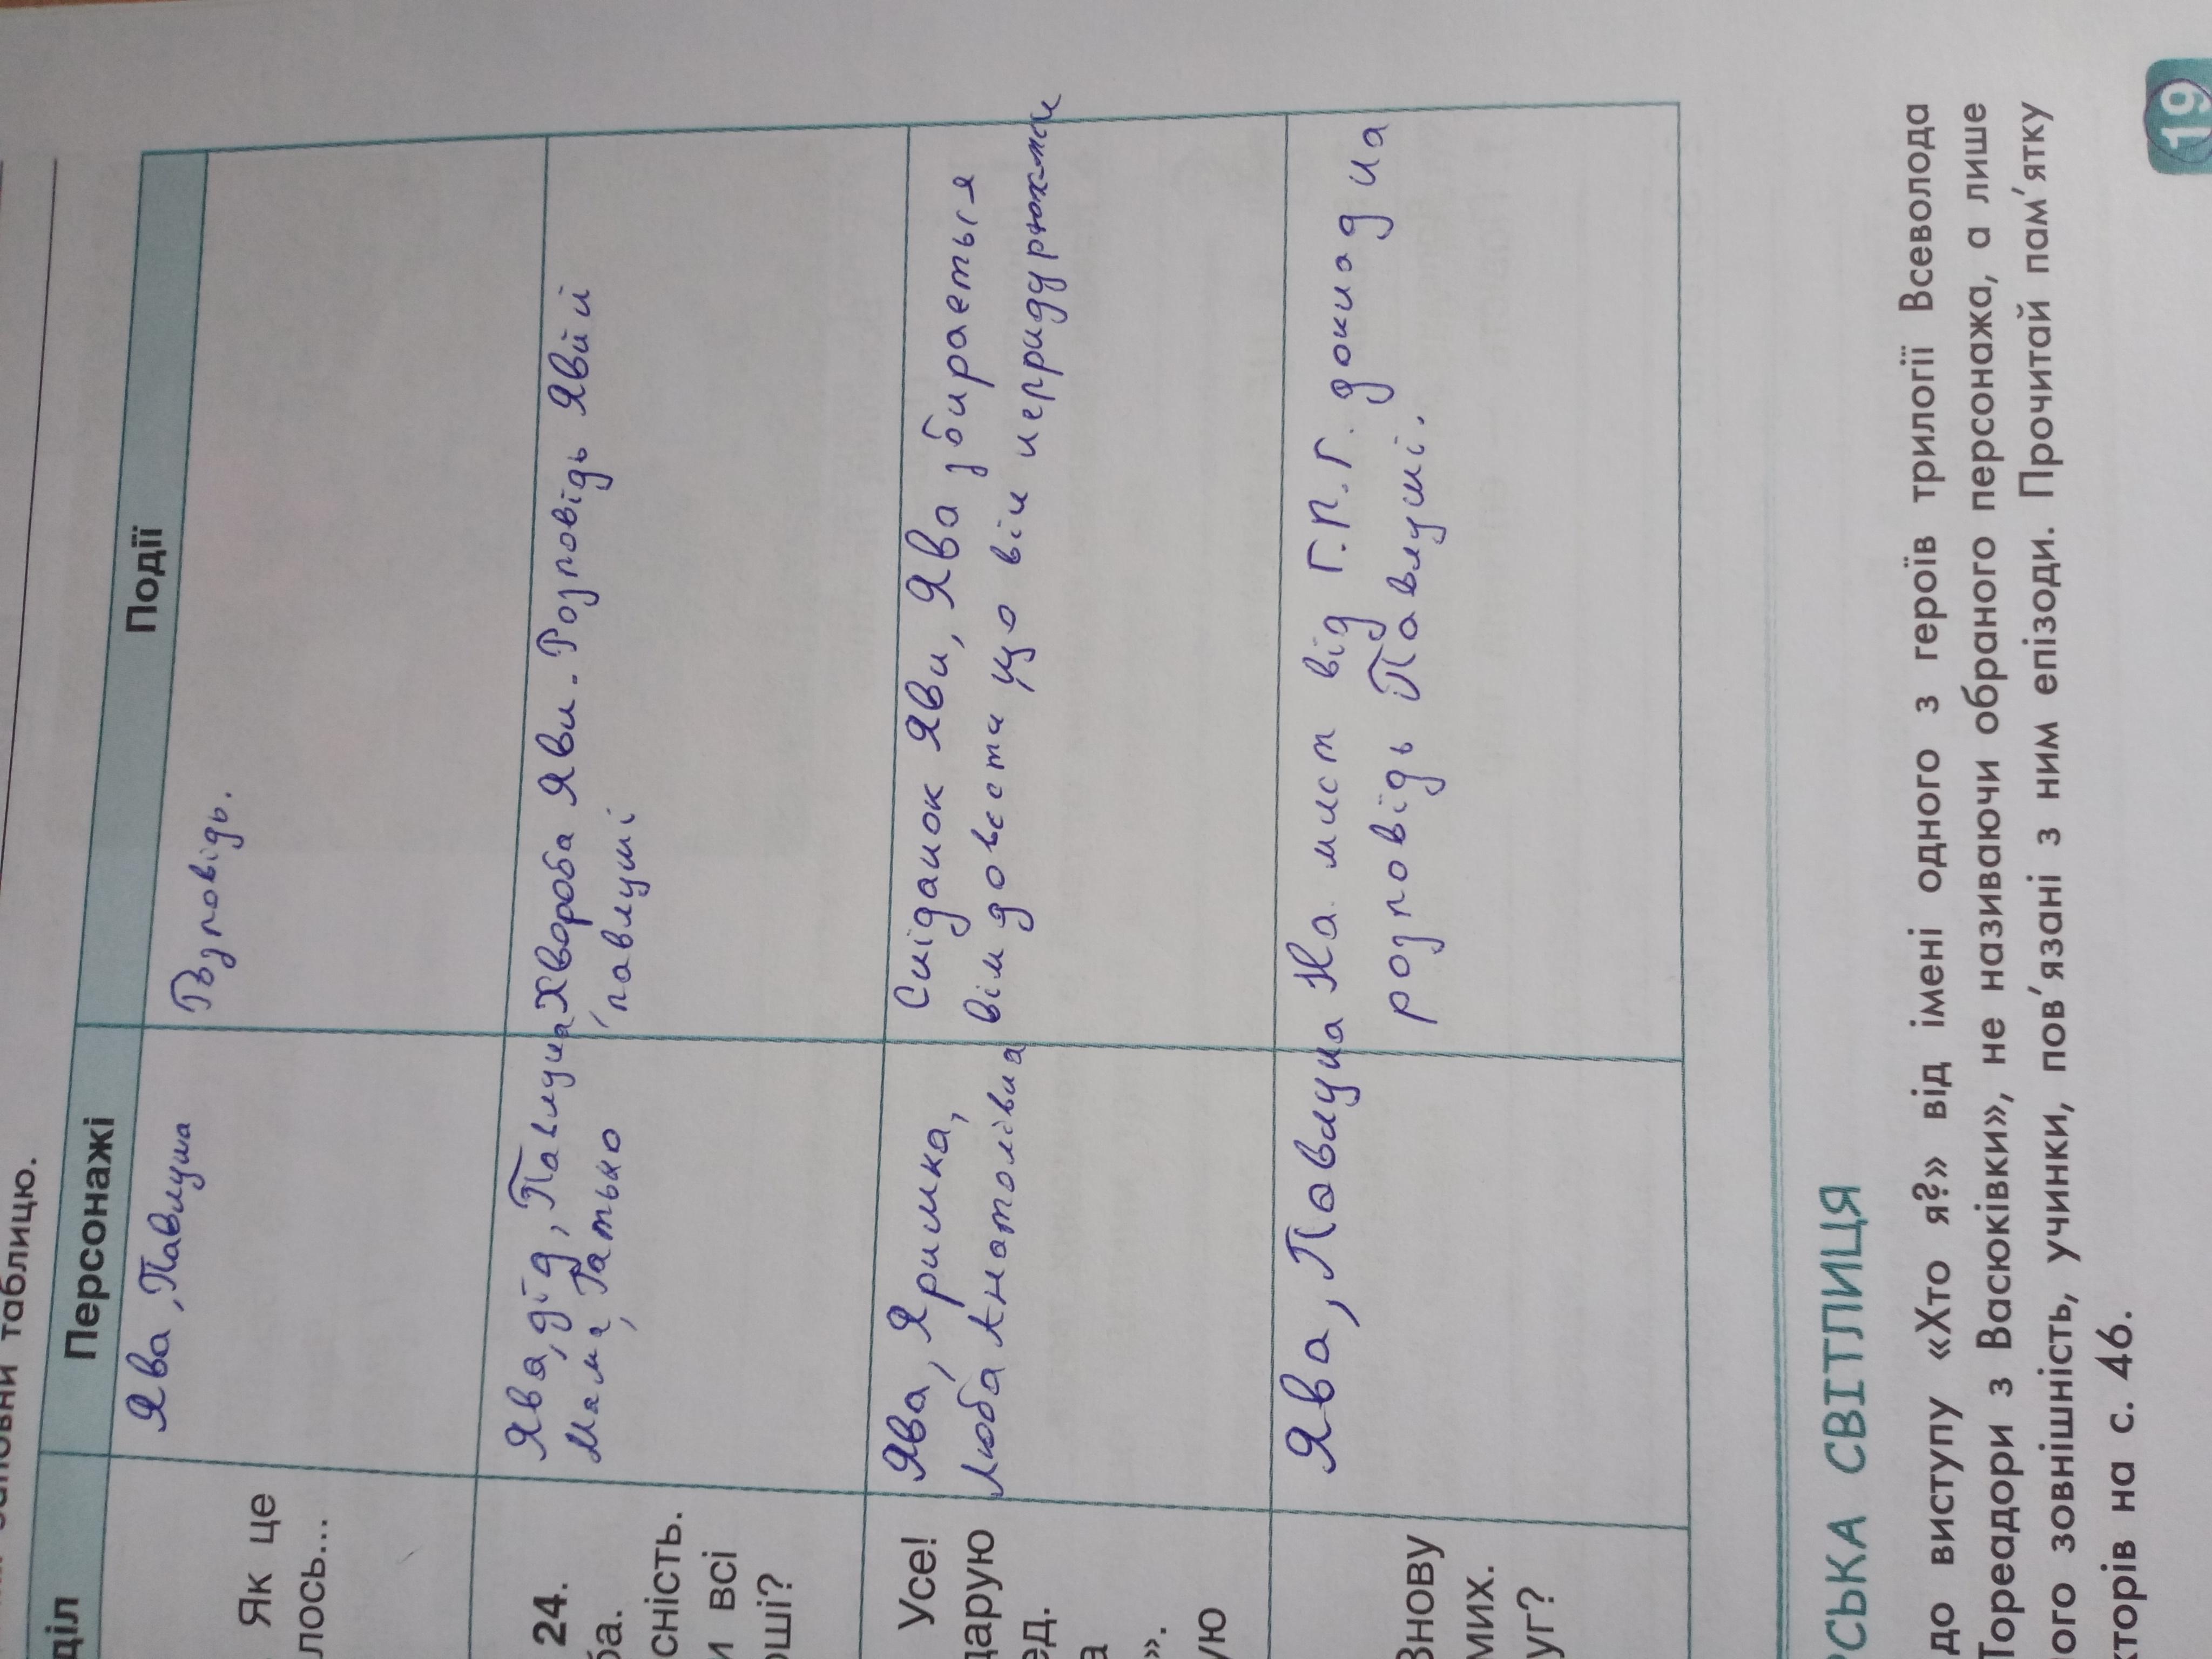 заповни таблицю.
діл Персонажі Події
Як це
лось...
Ява, Павлуша
Розповідь.
24.
ба.
сність.
и всі
оші?
Ява, дід, Павлуша
Мама, Батько
Хвороба Яви. Розповідь Яви й
павлуші
Усе!
дарую
ед.
а
».
ую
Ява, Яришка,
Люба Анатоліївна
Сніданок Яви, Ява збирається
всім довести що він непридуркжми
Знову
мих.
уг?
Ява, Павлуша
На лист від Г.П.Г. докинад на
розповідь Павлуші.
СЬКА СВІТЛИЦЯ
до виступу «Хто я?» від імені одного з героїв трилогії Всеволода
Тореадори з Васюківки», не називаючи обраного персонажа, а лише
ого зовнішність, учинки, пов'язані з ним епізоди. Прочитай пам'ятку
кторів на с. 46.
19